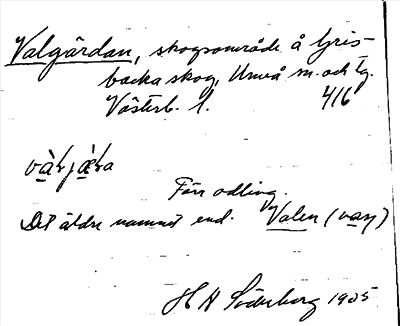 Valgärdan, skogsområde å Gris-
backa skog, Umeå sn. och tg.
Västerb. l. 416
Förr odling.
Det äldre namnet end. Valen
H H Söderberg 1925